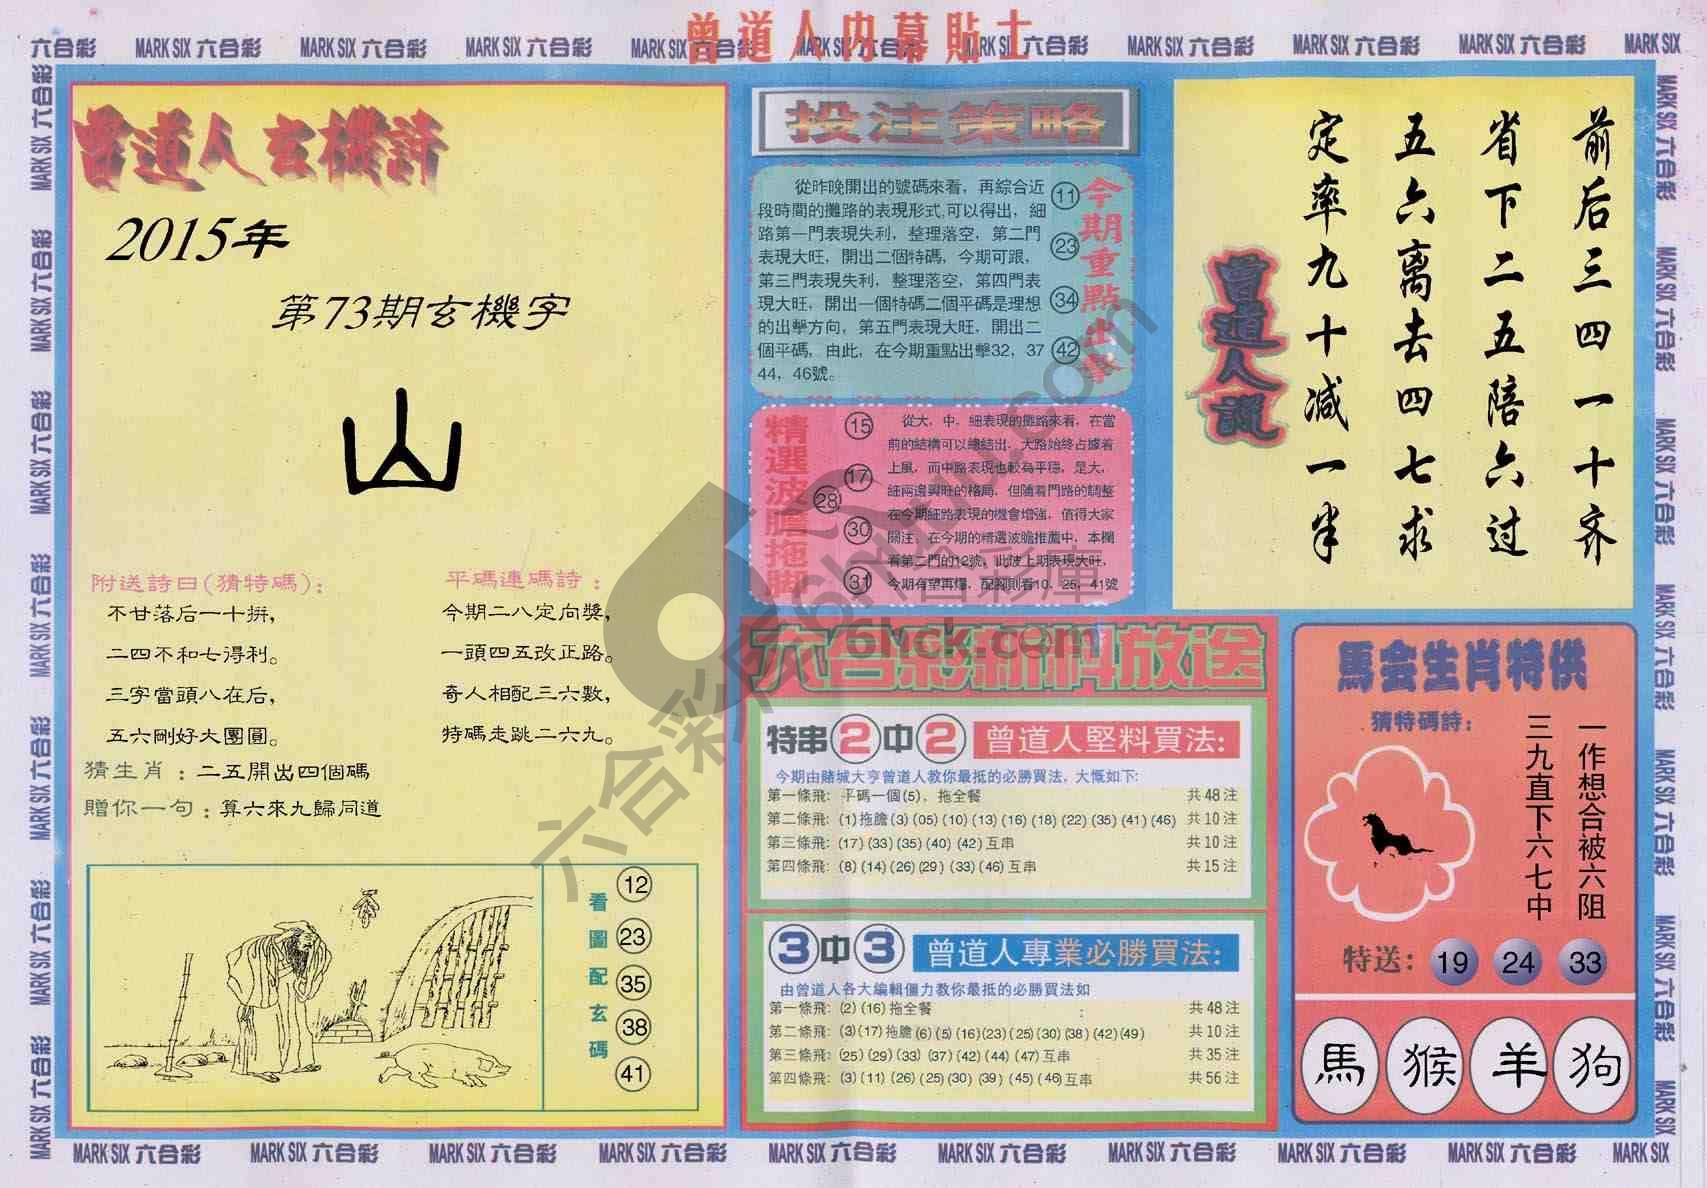 曾道人内幕貼士
六合彩 MARK SIX 六合彩 MARK SIX 六合彩 MARK SIX 六合彩 MARK SIX 六合彩 MARK SIX 六合彩 MARK SIX 六合彩 MARK SIX 六合彩 MARK SIX 六合彩 MARK SIX 六合彩 MARK SIX
曾道人玄機詩
2015年
第73期玄機字
山
附送詩曰(猜特碼):
不甘落后一十拚,
二四不和七得利。
三字當頭八在后,
五六剛好大團圓。
平碼連碼詩:
今期二八定向獎,
一頭四五改正路。
奇人相配三六數,
特碼走跳二六九。
猜生肖:二五開出四個碼
贈你一句:算六來九歸同道
看圖配玄碼
12
23
35
38
41
投注策略
從昨晚開出的號碼來看，再綜合近
段時間的攤路的表現形式,可以得出，細
路第一門表現失利，整理落空，第二門
表現大旺，開出二個特碼，今期可跟，
第三門表現失利，整理落空，第四門表
現大旺，開出一個特碼二個平碼是理想
的出擊方向，第五門表現大旺，開出二
個平碼，由此，在今期重點出擊32，37
44，46號。
11
23
34
42
今期重點出擊
精選波膽拖脚
15
17
28
30
31
從大，中，細表現的攤路來看，在當
前的結構可以總結出，大路始終占據着
上風，而中路表現也較為平穩，是大，
細兩邊興旺的格局，但隨着門路的調整
在今期細路表現的機會增強，值得大家
關注，在今期的精選波膽推薦中，本欄
看第二門的12號，此波上期表現大旺，
今期有望再爆，配脚則看10、25、41號
前后三四一十齐
省下二五陪六过
五六离去四七求
定率九十减一半
曾道人說
六合彩新料放送
特串2中2 曾道人堅料買法:
今期由賭城大亨曾道人教你最抵的必勝買法，大慨如下:
第一條飛: 平碼一個(5)，拖全餐 共48注
第二條飛: (1)拖膽(3)(05)(10)(13)(16)(18)(22)(35)(41)(46) 共10注
第三條飛: (17)(33)(35)(40)(42)互串 共10注
第四條飛: (8)(14)(26)(29)(33)(46)互串 共15注
3中3 曾道人專業必勝買法:
由曾道人各大編輯僵力教你最抵的必勝買法如
第一條飛: (2)(16)拖全餐 共48注
第二條飛: (3)(17)拖膽(6)(5)(16)(23)(25)(30)(38)(42)(49) 共10注
第三條飛: (25)(29)(33)(37)(42)(44)(47)互串 共35注
第四條飛: (3)(11)(26)(25)(30)(39)(45)(46)互串 共56注
馬会生肖特供
猜特碼詩:
一作想合被六阻
三九直下六七中
特送: 19 24 33
馬 猴 羊 狗
6hck.com
MARK SIX 六合彩 MARK SIX 六合彩 MARK SIX 六合彩 MARK SIX 六合彩 MARK SIX 六合彩 MARK SIX 六合彩 MARK SIX 六合彩 MARK SIX 六合彩 MARK SIX 六合彩 MARK SIX